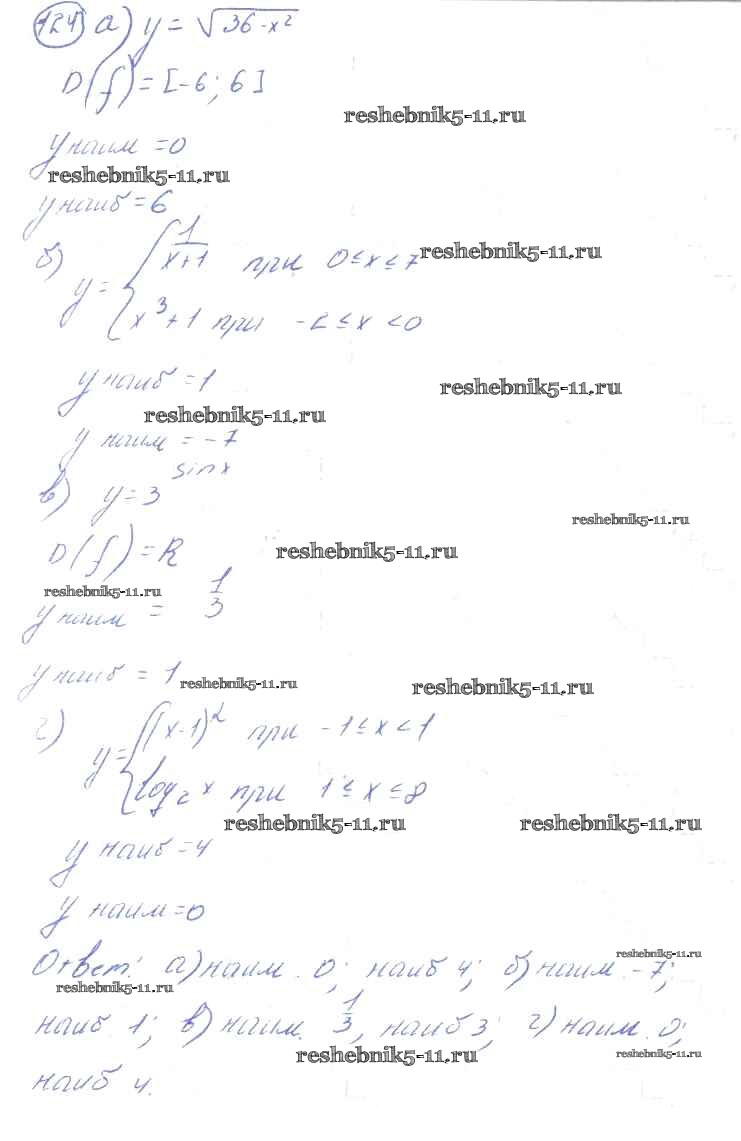 124 а) y = √36-x²
D(f) = [-6; 6]
reshebnik5-11.ru
y наим = 0
reshebnik5-11.ru
y наиб = 6
б) y = { 1/x+1 при 0 ≤ x ≤ 7 reshebnik5-11.ru
x³+1 при -2 ≤ x < 0
y наиб = 1
reshebnik5-11.ru
reshebnik5-11.ru
y наим = -7
в) y = 3^sinx
reshebnik5-11.ru
D(f) = R reshebnik5-11.ru
reshebnik5-11.ru
y наим = 1/3
y наиб = 1 reshebnik5-11.ru reshebnik5-11.ru
г) y = { (x-1)² при -1 ≤ x < 1
log₂x при 1 ≤ x ≤ 8
reshebnik5-11.ru reshebnik5-11.ru
y наиб = 4
y наим = 0
reshebnik5-11.ru
Ответ: а) наим. 0; наиб 4; б) наим. -7;
reshebnik5-11.ru
наиб 1; в) наим. 1/3, наиб 3; г) наим. 0;
reshebnik5-11.ru reshebnik5-11.ru
наиб 4.